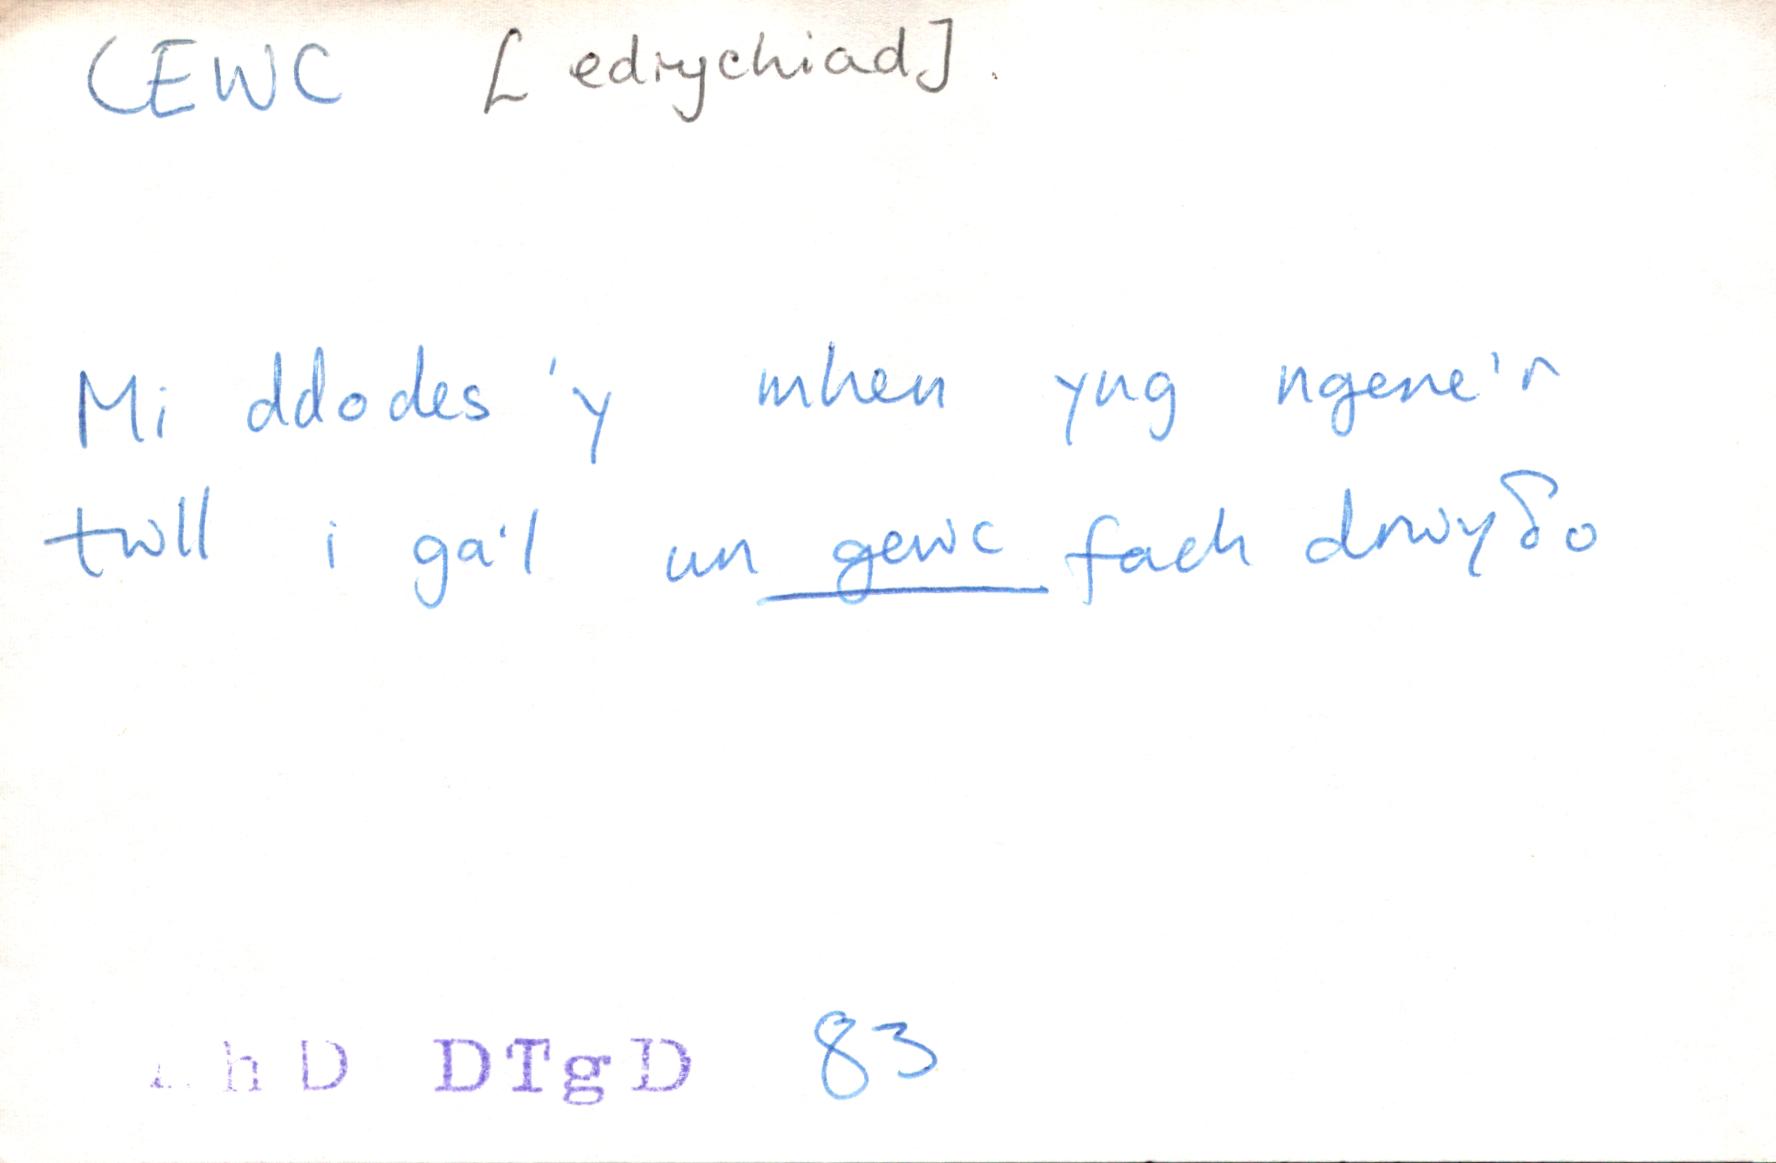 CEWC [edrychiad].
Mi ddodes 'y mhen yng ngene'r
twll i ga'l un gewc fach drwyδo
hD DTgD 83